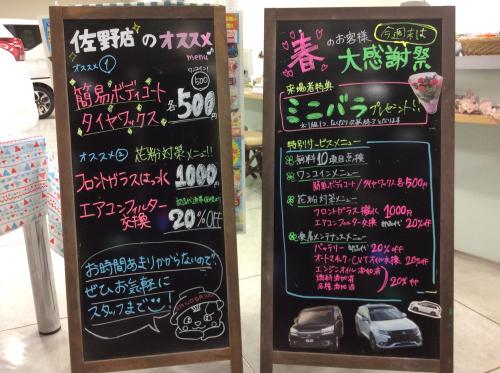 佐野店のオススメ
menu
オススメ①
ワンコイン!
500
簡易ボディコート
タイヤワックス
各500円
オススメ② 花粉対策メニュー!!
フロントガラスはっ水 1000円
エアコンフィルター
交換
部品代
20%OFF
お時間あまりかからないので
ぜひお気軽に
スタッフまで
春のお客様
今週末は
大感謝祭
来場者特典
ミニバラプレゼント!!
特別サービスメニュー
無料10項目点検
ワンコインメニュー
簡易ボディコート/タイヤワックス各500円
花粉対策メニュー
フロントガラス撥水 1000円
エアコンフィルター交換 部品代20%off
メンテナンスメニュー
バッテリー 部品代20%off
オートマオイル・CVTオイル交換 20%off
エンジンオイル添加剤
燃料添加剤
各種添加剤
20%off